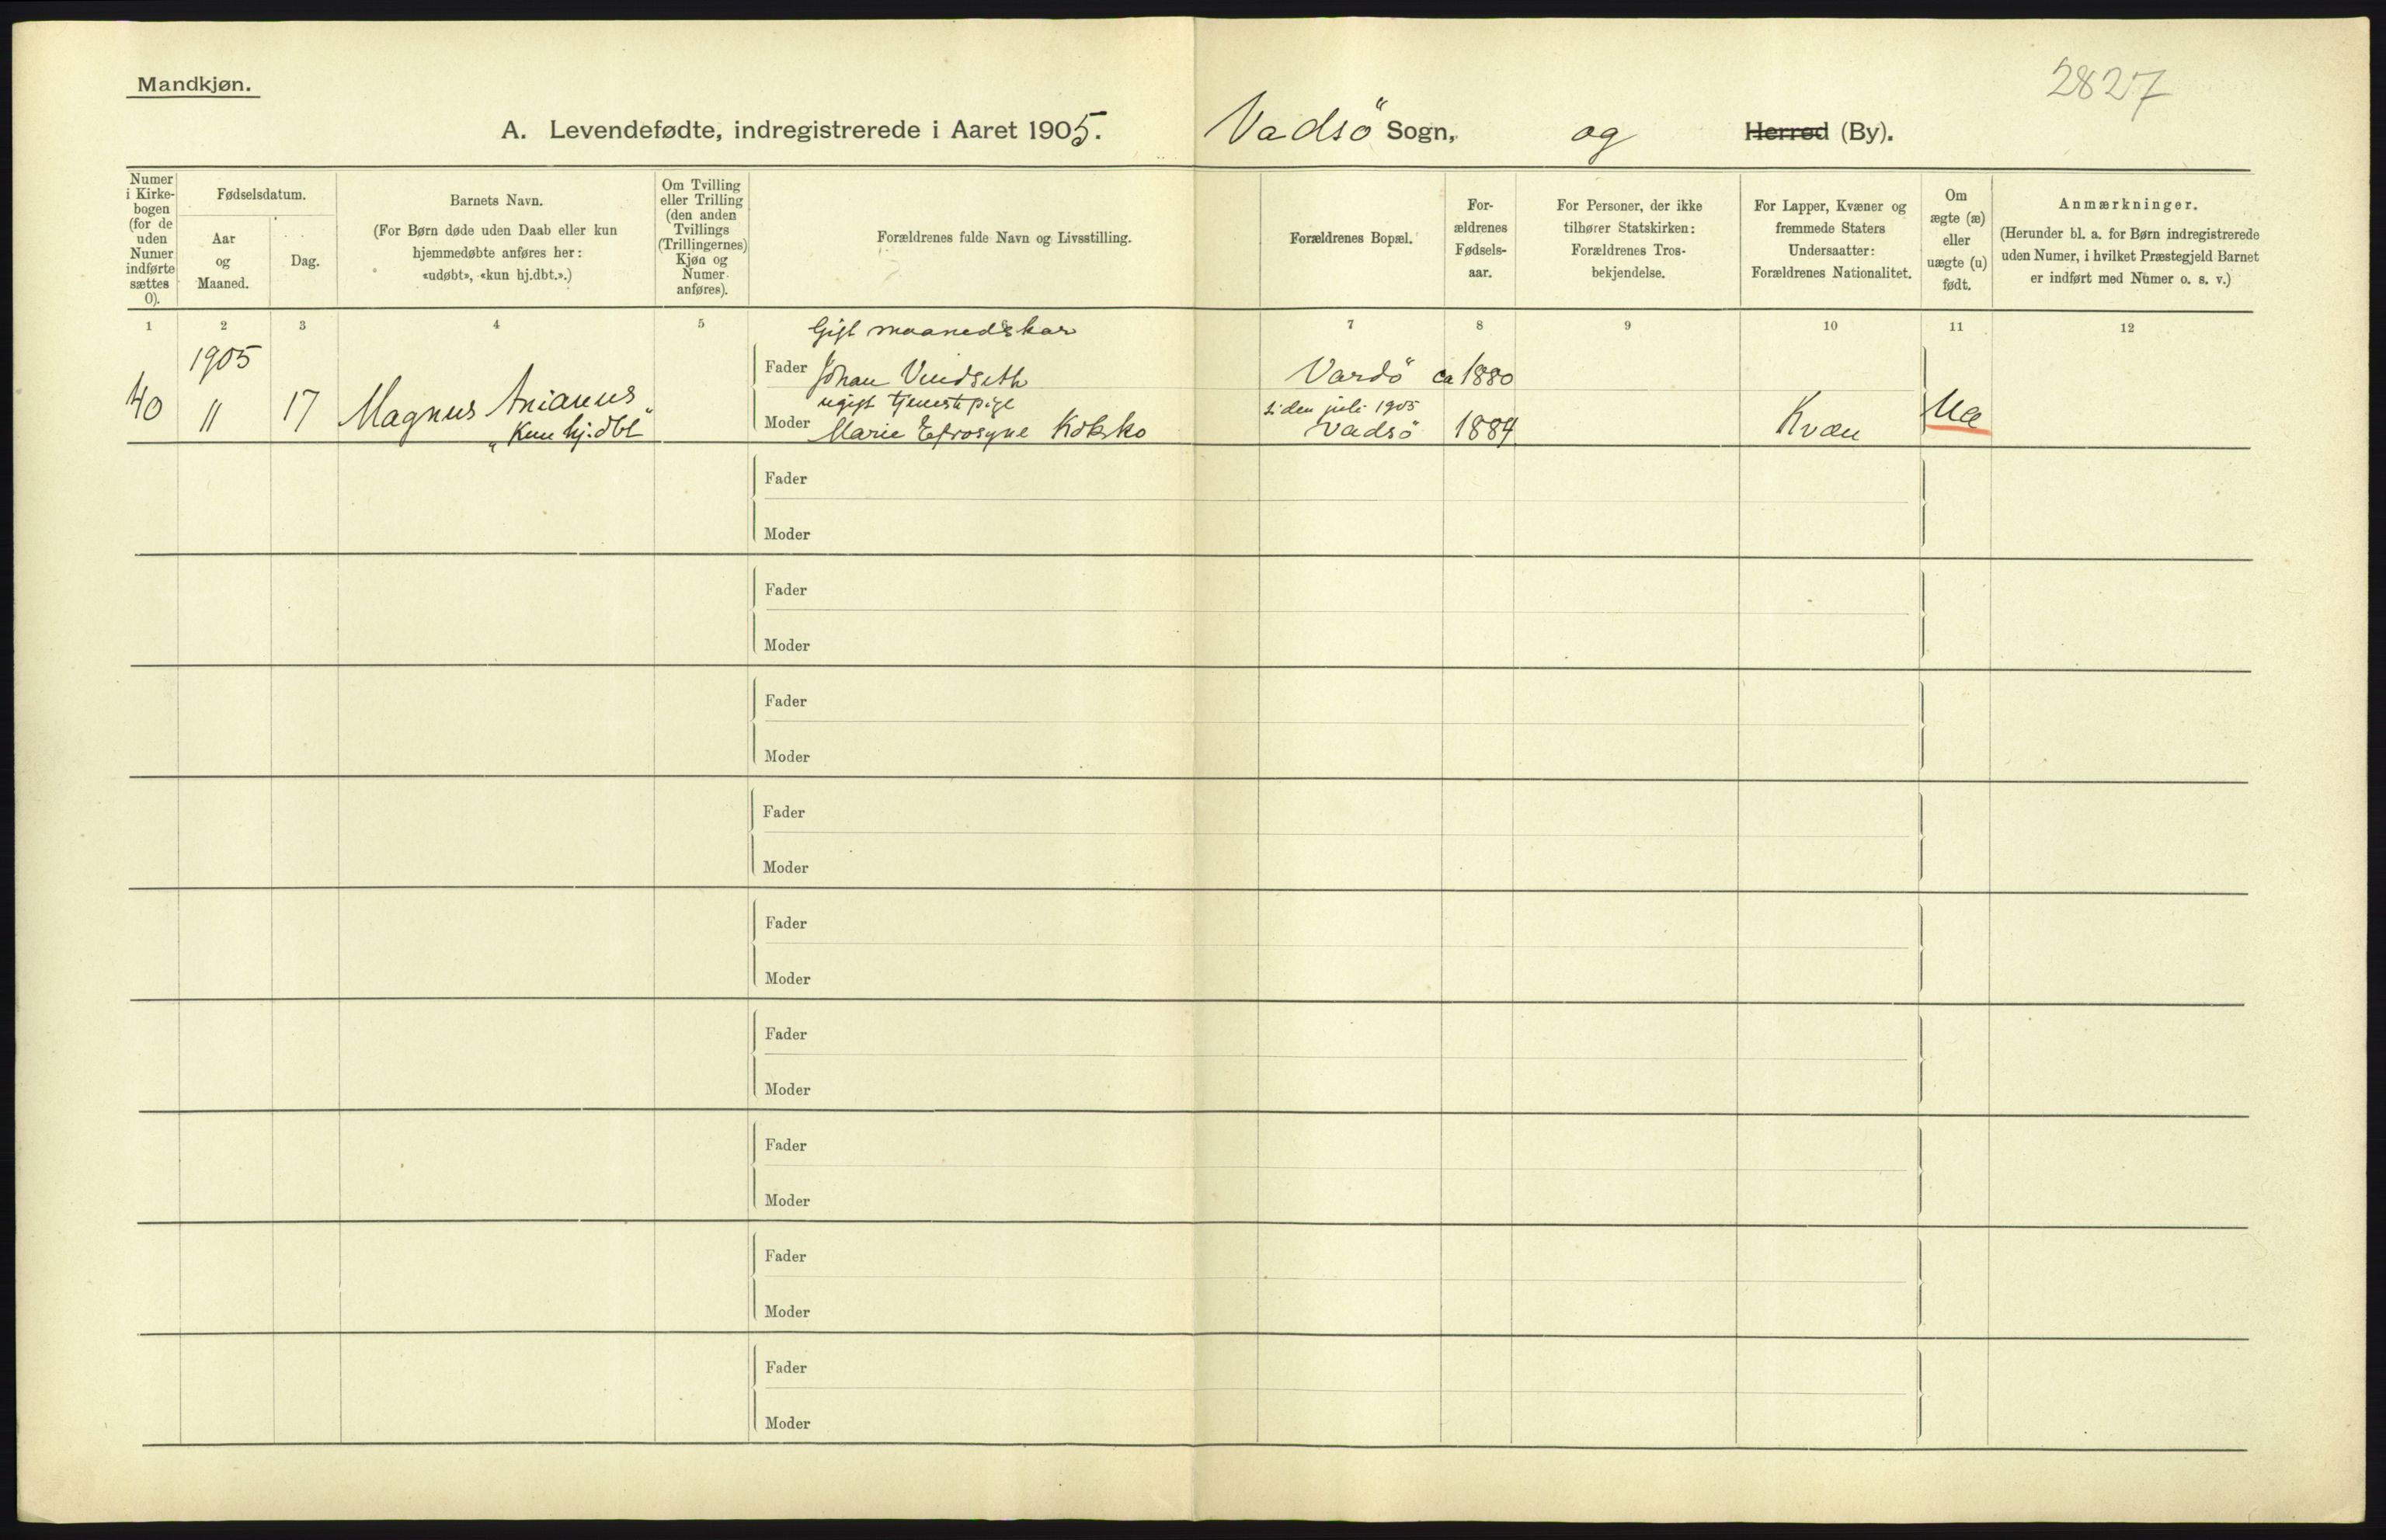 Mandkjøn.
2827
A. Levendefødte, indregistrerede i Aaret 1905. Vadsö Sogn, og Herred (By).
Numer i Kirke-bogen (for de uden Numer indførte sættes 0).
Fødselsdatum.
Aar og Maaned.
Dag.
Barnets Navn.
(For Børn døde uden Daab eller kun
hjemmedøbte anføres her:
«udøbt», «kun hj.dbt.».)
Om Tvilling eller Trilling (den anden Tvillings (Trillingernes) Kjøn og Numer anføres).
Forældrenes fulde Navn og Livsstilling.
Forældrenes Bopæl.
For-ældrenes Fødsels-aar.
For Personer, der ikke
tilhører Statskirken:
Forældrenes Tros-
bekjendelse.
For Lapper, Kvæner og
fremmede Staters
Undersaatter:
Forældrenes Nationalitet.
Om
ægte (æ)
eller
uægte (u)
født.
Anmærkninger.
(Herunder bl. a. for Børn indregistrerede
uden Numer, i hvilket Præstegjeld Barnet
er indført med Numer o. s. v.)
1 2 3 4 5 7 8 9 10 11 12
Gift maanedskar
1905
Fader Johan Vindseth Vardö ca 1880
40 11 17 Magnus Arianus
ugift tjenestepige siden juli 1905
"Kun hj.dbt" Moder Marie Efrosyne Koksko Vadsö 1884 Kvæn Uæ
Fader
Moder
Fader
Moder
Fader
Moder
Fader
Moder
Fader
Moder
Fader
Moder
Fader
Moder
Fader
Moder
Fader
Moder